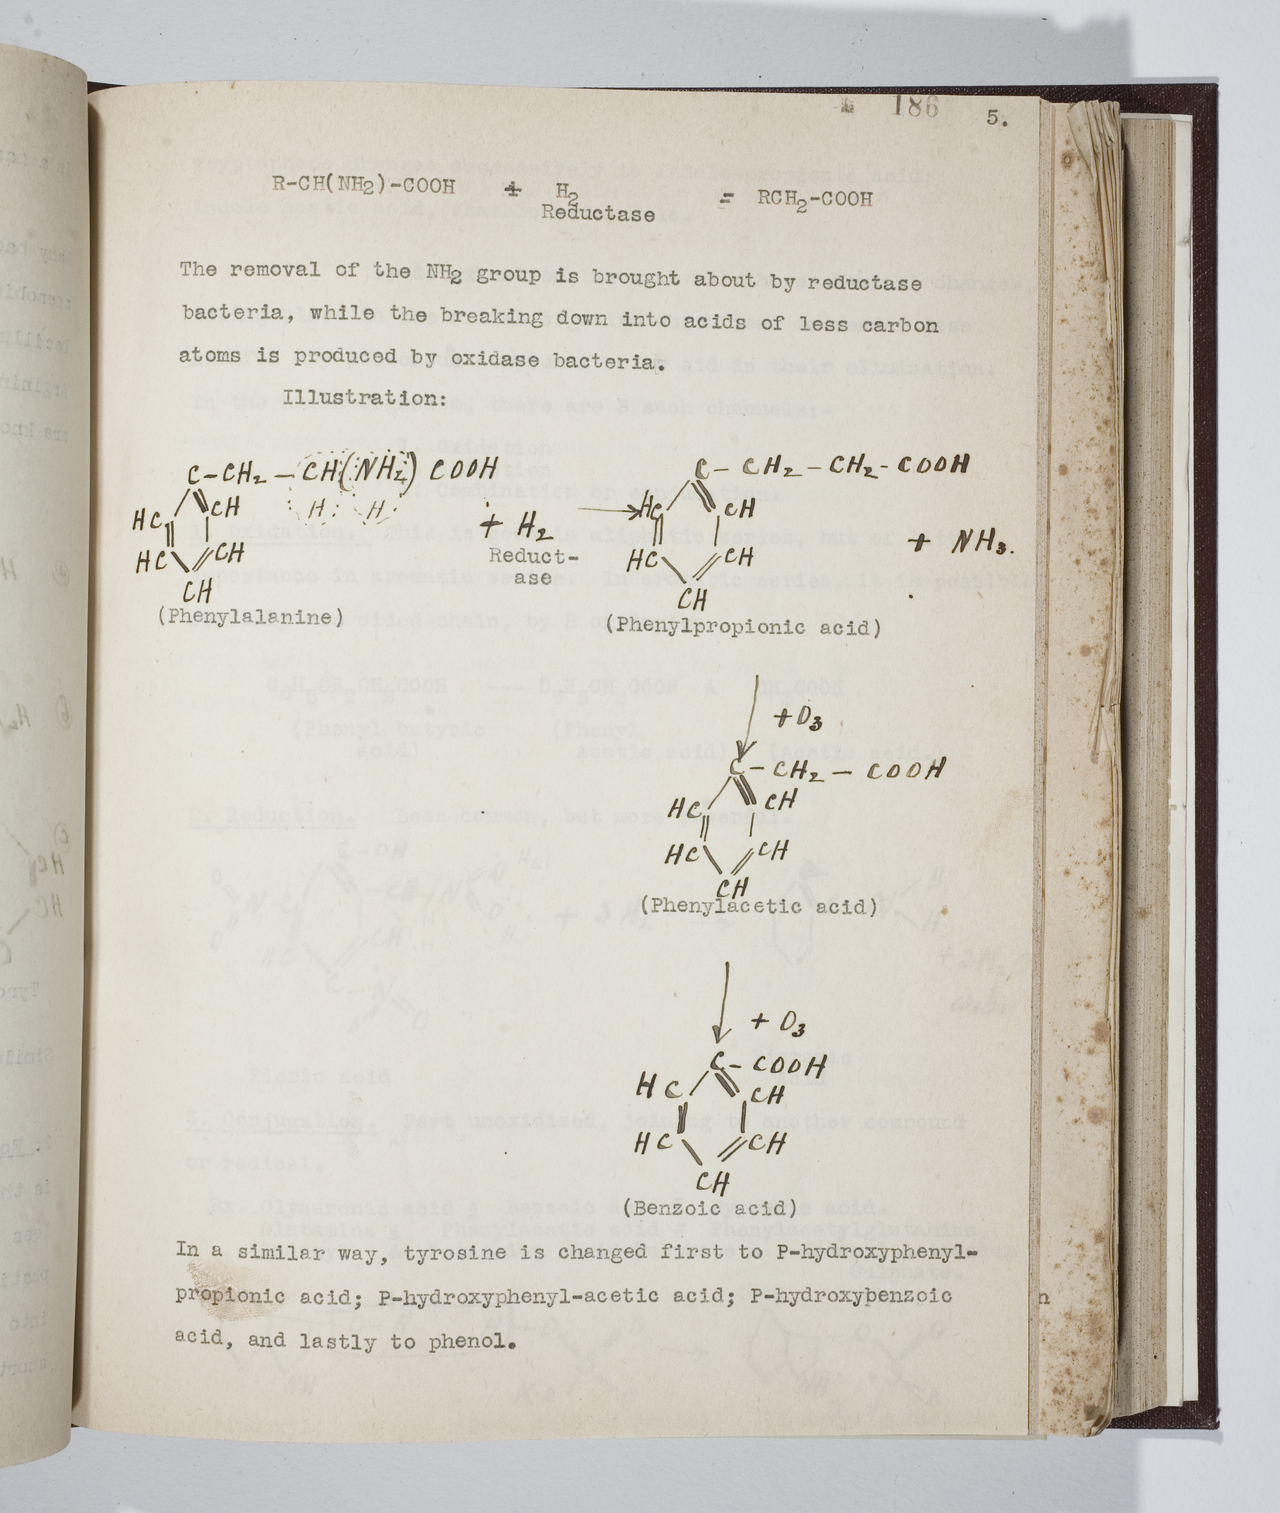 186 5.
R-CH(NH2)-COOH + H2 = RCH2-COOH
Reductase
The removal of the NH2 group is brought about by reductase
bacteria, while the breaking down into acids of less carbon
atoms is produced by oxidase bacteria.
Illustration:
C-CH2-CH(NH2) COOH
HC CH
H: H:
HC CH
CH
+ H2
Reduct-
ase
(Phenylalanine)
C-CH2-CH2-COOH
HC CH
HC CH
CH
+ NH3.
(Phenylpropionic acid)
+O3
C-CH2-COOH
HC CH
HC CH
CH
(Phenylacetic acid)
+ O3
C-COOH
HC CH
HC CH
CH
(Benzoic acid)
In a similar way, tyrosine is changed first to P-hydroxyphenyl-
propionic acid; P-hydroxyphenyl-acetic acid; P-hydroxybenzoic
acid, and lastly to phenol.